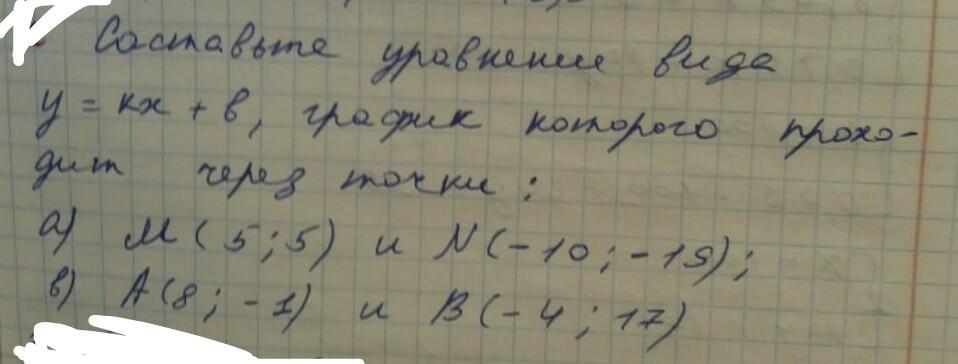 Составьте уравнение вида
y = kx + b, график которого прохо-
дит через точки:
а) M(5;5) и N(-10;-19);
в) A(8;-1) и B(-4;17)